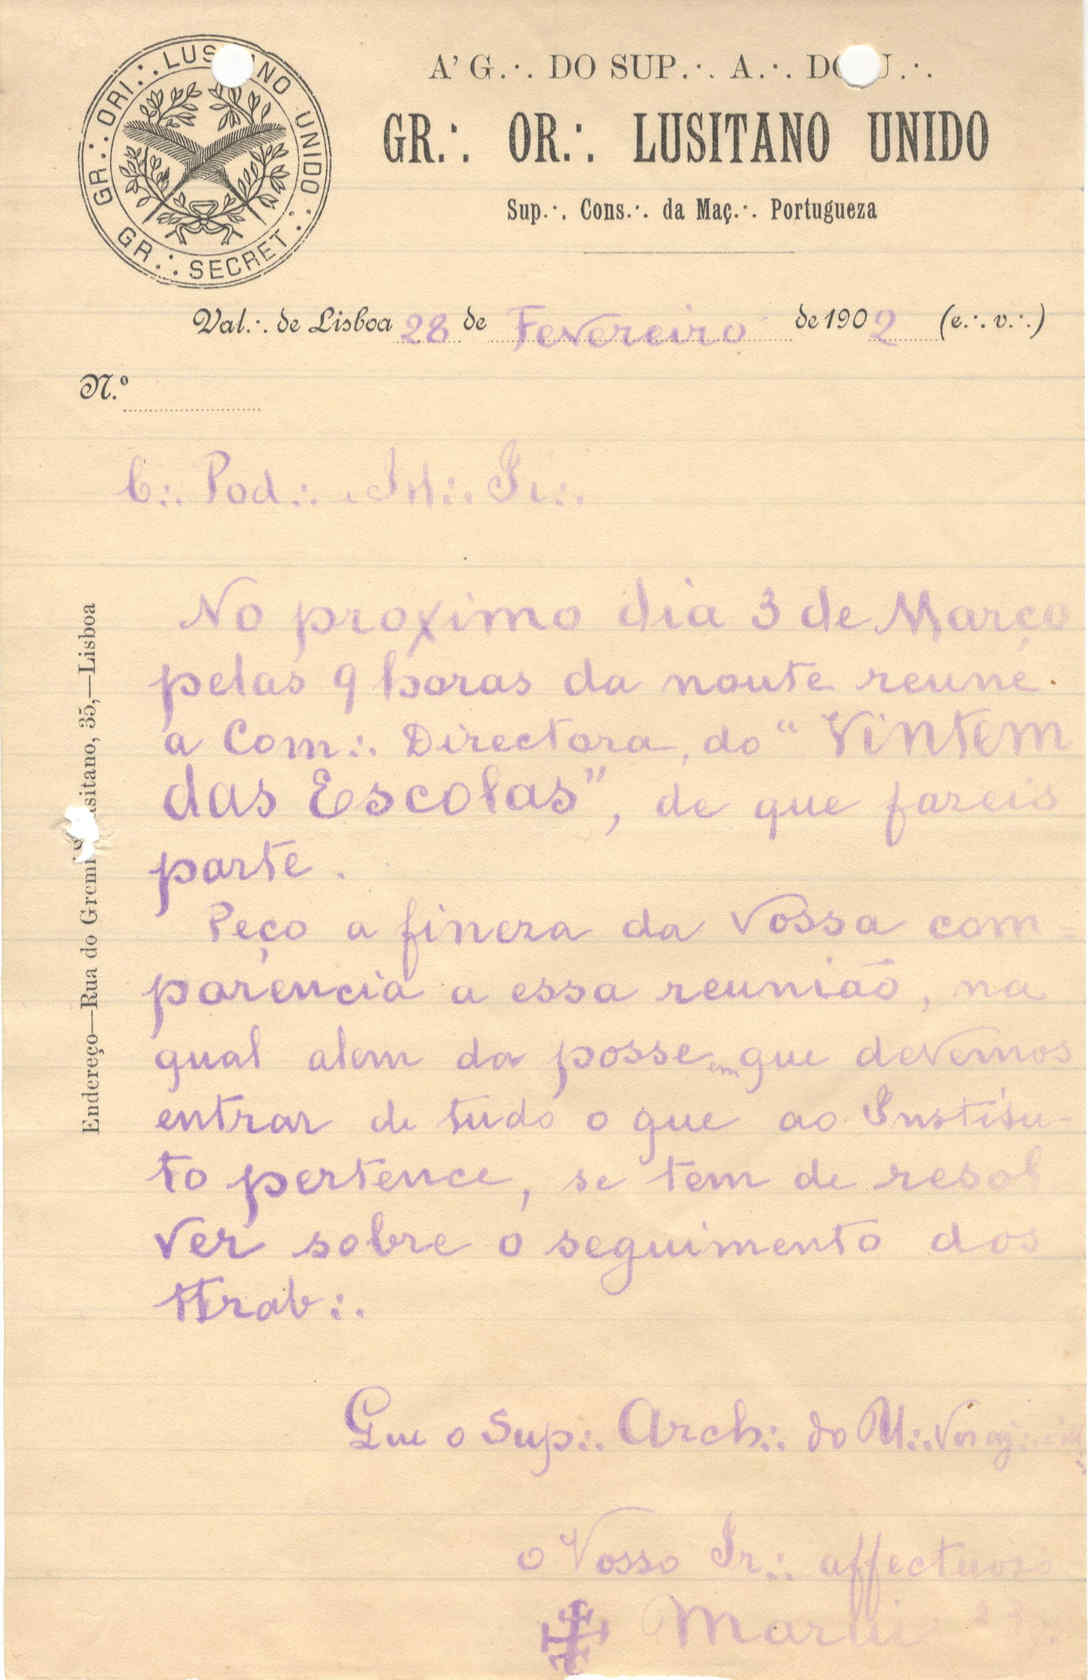 GR.·. ORI.·. LUS NO UNIDO.·.
GR.·. SECRET.·.
A' G.·. DO SUP.·. A.·. DO U.·.
GR.·. OR.·. LUSITANO UNIDO
Sup.·. Cons.·. da Maç.·. Portugueza
Val.·. de Lisboa 28 de Fevereiro de 1902 (e.·. v.·.)
N.º
C.·. Pod.·. Ir.·.
Endereço—Rua do Gremi usitano, 35,—Lisboa
No proximo dia 3 de Março
pelas 9 horas da noute reune
a Com.·. Directora, do "Vintem
das Escolas", de que fareis
parte.
Peço a fineza da vossa com-
parencia a essa reunião, na
qual alem da posse em que devemos
entrar de tudo o que ao Institu-
to pertence, se tem de resol
ver sobre o seguimento dos
ttrab.·.
Que o Sup.·. Arch.·. do U.·. Vos aj.·.
o Vosso Ir.·. affectuoso